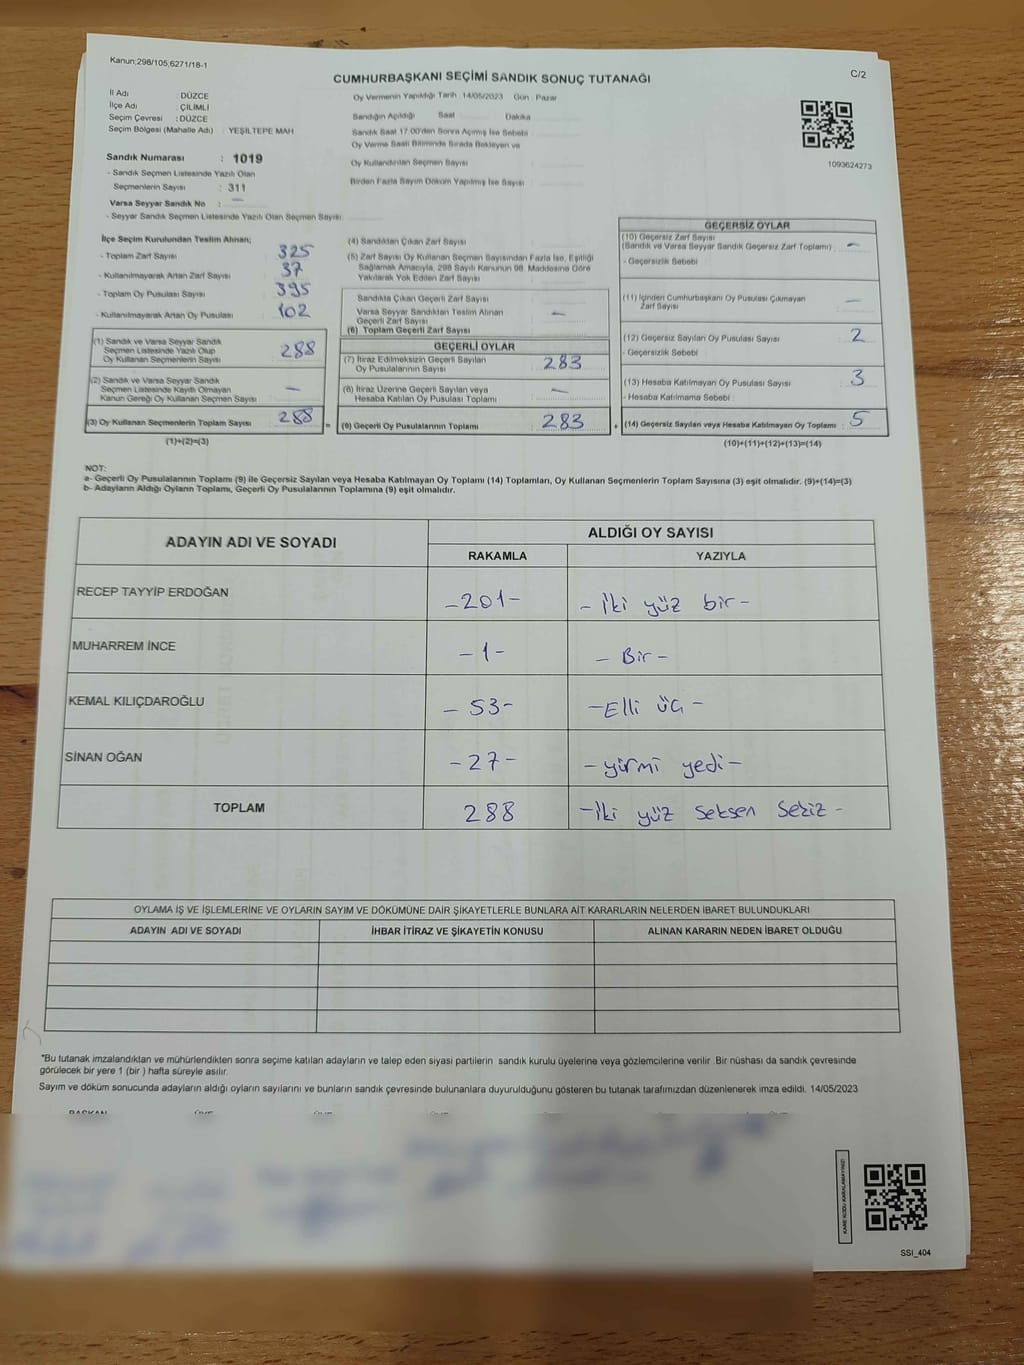 Kanun;298/105,6271/18-1
CUMHURBAŞKANI SEÇİMİ SANDIK SONUÇ TUTANAĞI
C/2
İl Adı : DÜZCE
İlçe Adı : ÇİLİMLİ
Seçim Çevresi : DÜZCE
Seçim Bölgesi (Mahalle Adı) : YEŞİLTEPE MAH
Sandık Numarası : 1019
- Sandık Seçmen Listesinde Yazılı Olan
Seçmenlerin Sayısı : 311
Varsa Seyyar Sandık No : —
- Seyyar Sandık Seçmen Listesinde Yazılı Olan Seçmen Sayısı:
Oy Vermenin Yapıldığı Tarih : 14/05/2023 Gün : Pazar
Sandığın Açıldığı Saat Dakika
Sandık Saat 17.00'den Sonra Açılmış İse Sebebi
Oy Verme Saati Bitiminde Sırada Bekleyen ve
Oy Kullandırılan Seçmen Sayısı :
Birden Fazla Sayım Döküm Yapılmış İse Sayısı :
1093624273
İlçe Seçim Kurulundan Teslim Alınan;
- Toplam Zarf Sayısı : 325
- Kullanılmayarak Artan Zarf Sayısı : 37
- Toplam Oy Pusulası Sayısı : 395
- Kullanılmayarak Artan Oy Pusulası : 102
(1) Sandık ve Varsa Seyyar Sandık
Seçmen Listesinde Yazılı Olup
Oy Kullanan Seçmenlerin Sayısı : 288
(2) Sandık ve Varsa Seyyar Sandık
Seçmen Listesinde Kayıtlı Olmayan
Kanun Gereği Oy Kullanan Seçmen Sayısı : —
(3) Oy Kullanan Seçmenlerin Toplam Sayısı : 288
(1)+(2)=(3)
(4) Sandıktan Çıkan Zarf Sayısı :
(5) Zarf Sayısı Oy Kullanan Seçmen Sayısından Fazla İse, Eşitliği
Sağlamak Amacıyla, 298 Sayılı Kanunun 98. Maddesine Göre
Yakılarak Yok Edilen Zarf Sayısı :
Sandıkta Çıkan Geçerli Zarf Sayısı :
Varsa Seyyar Sandıktan Teslim Alınan
Geçerli Zarf Sayısı : —
(6) Toplam Geçerli Zarf Sayısı :
GEÇERLİ OYLAR
(7) İtiraz Edilmeksizin Geçerli Sayılan
Oy Pusulalarının Sayısı : 283
(8) İtiraz Üzerine Geçerli Sayılan veya
Hesaba Katılan Oy Pusulası Toplamı : —
= (9) Geçerli Oy Pusulalarının Toplamı : 283
GEÇERSİZ OYLAR
(10) Geçersiz Zarf Sayısı
(Sandık ve Varsa Seyyar Sandık Geçersiz Zarf Toplamı) : —
- Geçersizlik Sebebi :
(11) İçinden Cumhurbaşkanı Oy Pusulası Çıkmayan
Zarf Sayısı : —
(12) Geçersiz Sayılan Oy Pusulası Sayısı : 2
- Geçersizlik Sebebi :
(13) Hesaba Katılmayan Oy Pusulası Sayısı : 3
- Hesaba Katılmama Sebebi :
+ (14) Geçersiz Sayılan veya Hesaba Katılmayan Oy Toplamı : 5
(10)+(11)+(12)+(13)=(14)
NOT:
a- Geçerli Oy Pusulalarının Toplamı (9) ile Geçersiz Sayılan veya Hesaba Katılmayan Oy Toplamı (14) Toplamları, Oy Kullanan Seçmenlerin Toplam Sayısına (3) eşit olmalıdır. (9)+(14)=(3)
b- Adayların Aldığı Oyların Toplamı, Geçerli Oy Pusulalarının Toplamına (9) eşit olmalıdır.
ADAYIN ADI VE SOYADI ALDIĞI OY SAYISI
RAKAMLA YAZIYLA
RECEP TAYYİP ERDOĞAN -201- - İki yüz bir -
MUHARREM İNCE -1- - Bir -
KEMAL KILIÇDAROĞLU - 53- -Elli üç -
SİNAN OĞAN -27- -yirmi yedi-
TOPLAM 288 -İki yüz seksen sekiz -
OYLAMA İŞ VE İŞLEMLERİNE VE OYLARIN SAYIM VE DÖKÜMÜNE DAİR ŞİKAYETLERLE BUNLARA AİT KARARLARIN NELERDEN İBARET BULUNDUKLARI
ADAYIN ADI VE SOYADI İHBAR İTİRAZ VE ŞİKAYETİN KONUSU ALINAN KARARIN NEDEN İBARET OLDUĞU
*Bu tutanak imzalandıktan ve mühürlendikten sonra seçime katılan adayların ve talep eden siyasi partilerin sandık kurulu üyelerine veya gözlemcilerine verilir .Bir nüshası da sandık çevresinde
görülecek bir yere 1 (bir ) hafta süreyle asılır.
Sayım ve döküm sonucunda adayların aldığı oyların sayılarını ve bunların sandık çevresinde bulunanlara duyurulduğunu gösteren bu tutanak tarafımızdan düzenlenerek imza edildi. 14/05/2023
BAŞKAN ÜYE ÜYE
KARE KODU KARALAMAYINIZ!
SSI_404